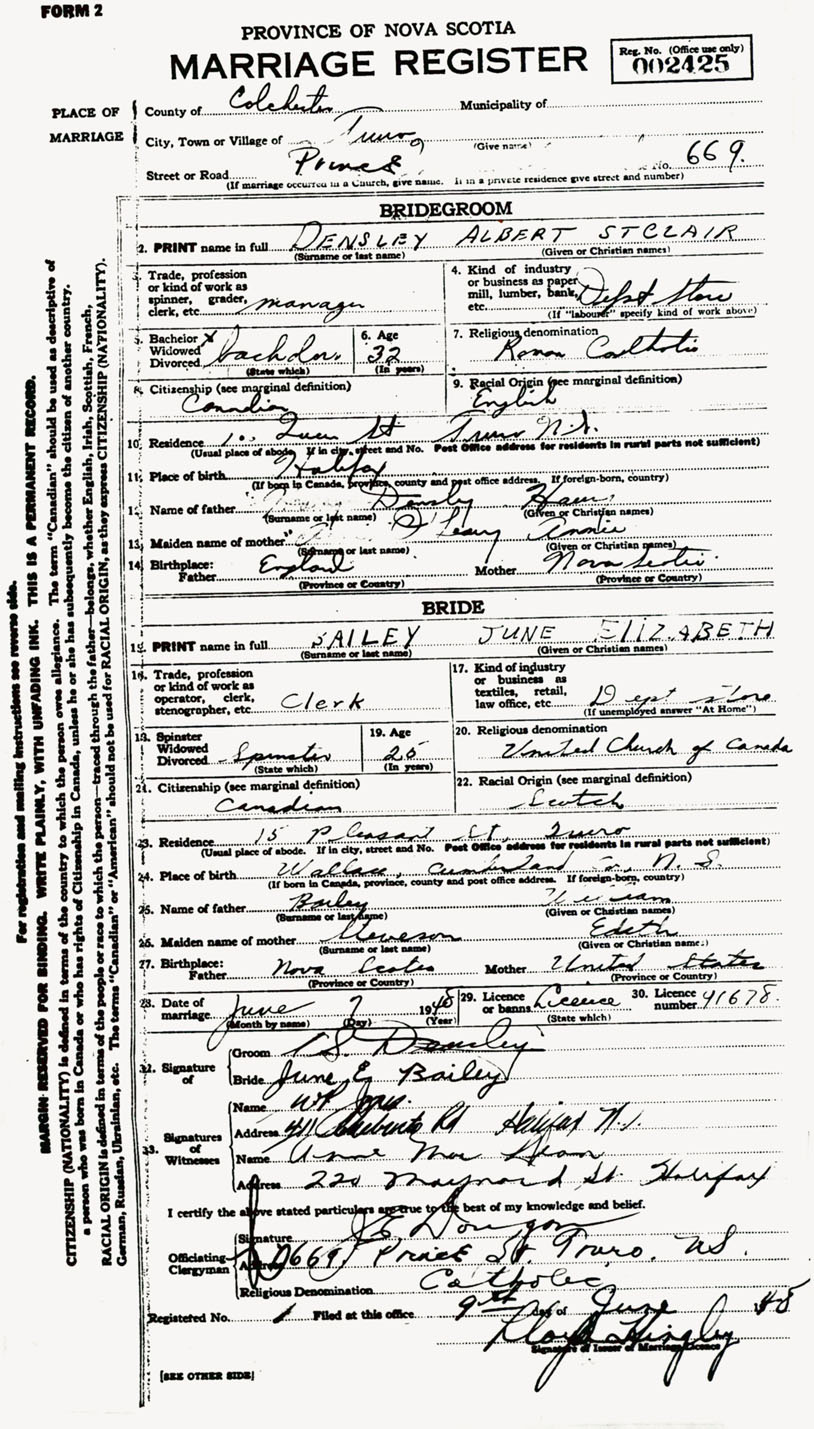 FORM 2
PROVINCE OF NOVA SCOTIA
MARRIAGE REGISTER
Reg. No. (Office use only)
002425
PLACE OF MARRIAGE
County of Colchester Municipality of
City, Town or Village of Truro (Give name)
Street or Road Prince No. 669.
(If marriage occurred in a Church, give name. If in a private residence give street and number)
BRIDEGROOM
2. PRINT name in full DENSLEY ALBERT STCLAIR
(Surname or last name) (Given or Christian names)
3. Trade, profession or kind of work as spinner, grader, clerk, etc. manager
4. Kind of industry or business as paper mill, lumber, bank, etc. Dept Store
(If "labourer" specify kind of work above)
5. Bachelor X Widowed Divorced bachelor (State which)
6. Age 32 (In years)
7. Religious denomination Roman Catholic
8. Citizenship (see marginal definition) Canadian
9. Racial Origin (see marginal definition) English
10. Residence Queen St Truro N.S.
(Usual place of abode. If in city, street and No. Post Office address for residents in rural parts not sufficient)
11. Place of birth Halifax
(If born in Canada, province, county and post office address. If foreign-born, country)
12. Name of father Densley
(Surname or last name) (Given or Christian names)
13. Maiden name of mother O'Leary Annie
(Surname or last name) (Given or Christian names)
14. Birthplace: Father England Mother Nova Scotia
(Province or Country) (Province or Country)
BRIDE
15. PRINT name in full BAILEY JUNE ELIZABETH
(Surname or last name) (Given or Christian names)
16. Trade, profession or kind of work as operator, clerk, stenographer, etc. Clerk
17. Kind of industry or business as textiles, retail, law office, etc. Dept store
(If unemployed answer "At Home")
18. Spinster Widowed Divorced Spinster (State which)
19. Age (In years)
20. Religious denomination United Church of Canada
21. Citizenship (see marginal definition) Canadian
22. Racial Origin (see marginal definition) Scotch
23. Residence 15 Pleasant St, Truro
(Usual place of abode. If in city, street and No. Post Office address for residents in rural parts not sufficient)
24. Place of birth Wallace, Cumberland Co, N.S.
(If born in Canada, province, county and post office address. If foreign-born, country)
25. Name of father Bailey William
(Surname or last name) (Given or Christian names)
26. Maiden name of mother Steveson Edith
(Surname or last name) (Given or Christian names)
27. Birthplace: Father Nova Scotia Mother United States
(Province or Country) (Province or Country)
28. Date of marriage June 7 1948
(Month by name) (Day) (Year)
29. Licence or banns Licence (State which)
30. Licence number 41678.
32. Signature of
Groom Densley
Bride June E Bailey
33. Signatures of Witnesses
Name
Address Rd Halifax N.S.
Name
Address 220 Maynard St. Halifax
I certify the above stated particulars are true to the best of my knowledge and belief.
Officiating Clergyman
Signature
Address 669 Prince St. Truro, N.S.
Religious Denomination Catholic
Registered No. Filed at this office 9th day of June 48
Lloyd Hingley
Signature of Issuer of Marriage Licence
[SEE OTHER SIDE]
For registration and mailing instructions see reverse side.
MARGIN RESERVED FOR BINDING. WRITE PLAINLY, WITH UNFADING INK. THIS IS A PERMANENT RECORD.
CITIZENSHIP (NATIONALITY) is defined in terms of the country to which the person owes allegiance. The term "Canadian" should be used as descriptive of
a person who was born in Canada or who has rights of Citizenship in Canada, unless he or she has subsequently become the citizen of another country.
RACIAL ORIGIN is defined in terms of the people or race to which the person—traced through the father—belongs, whether English, Irish, Scottish, French,
German, Russian, Ukrainian, etc. The terms "Canadian" or "American" should not be used for RACIAL ORIGIN, as they express CITIZENSHIP (NATIONALITY).